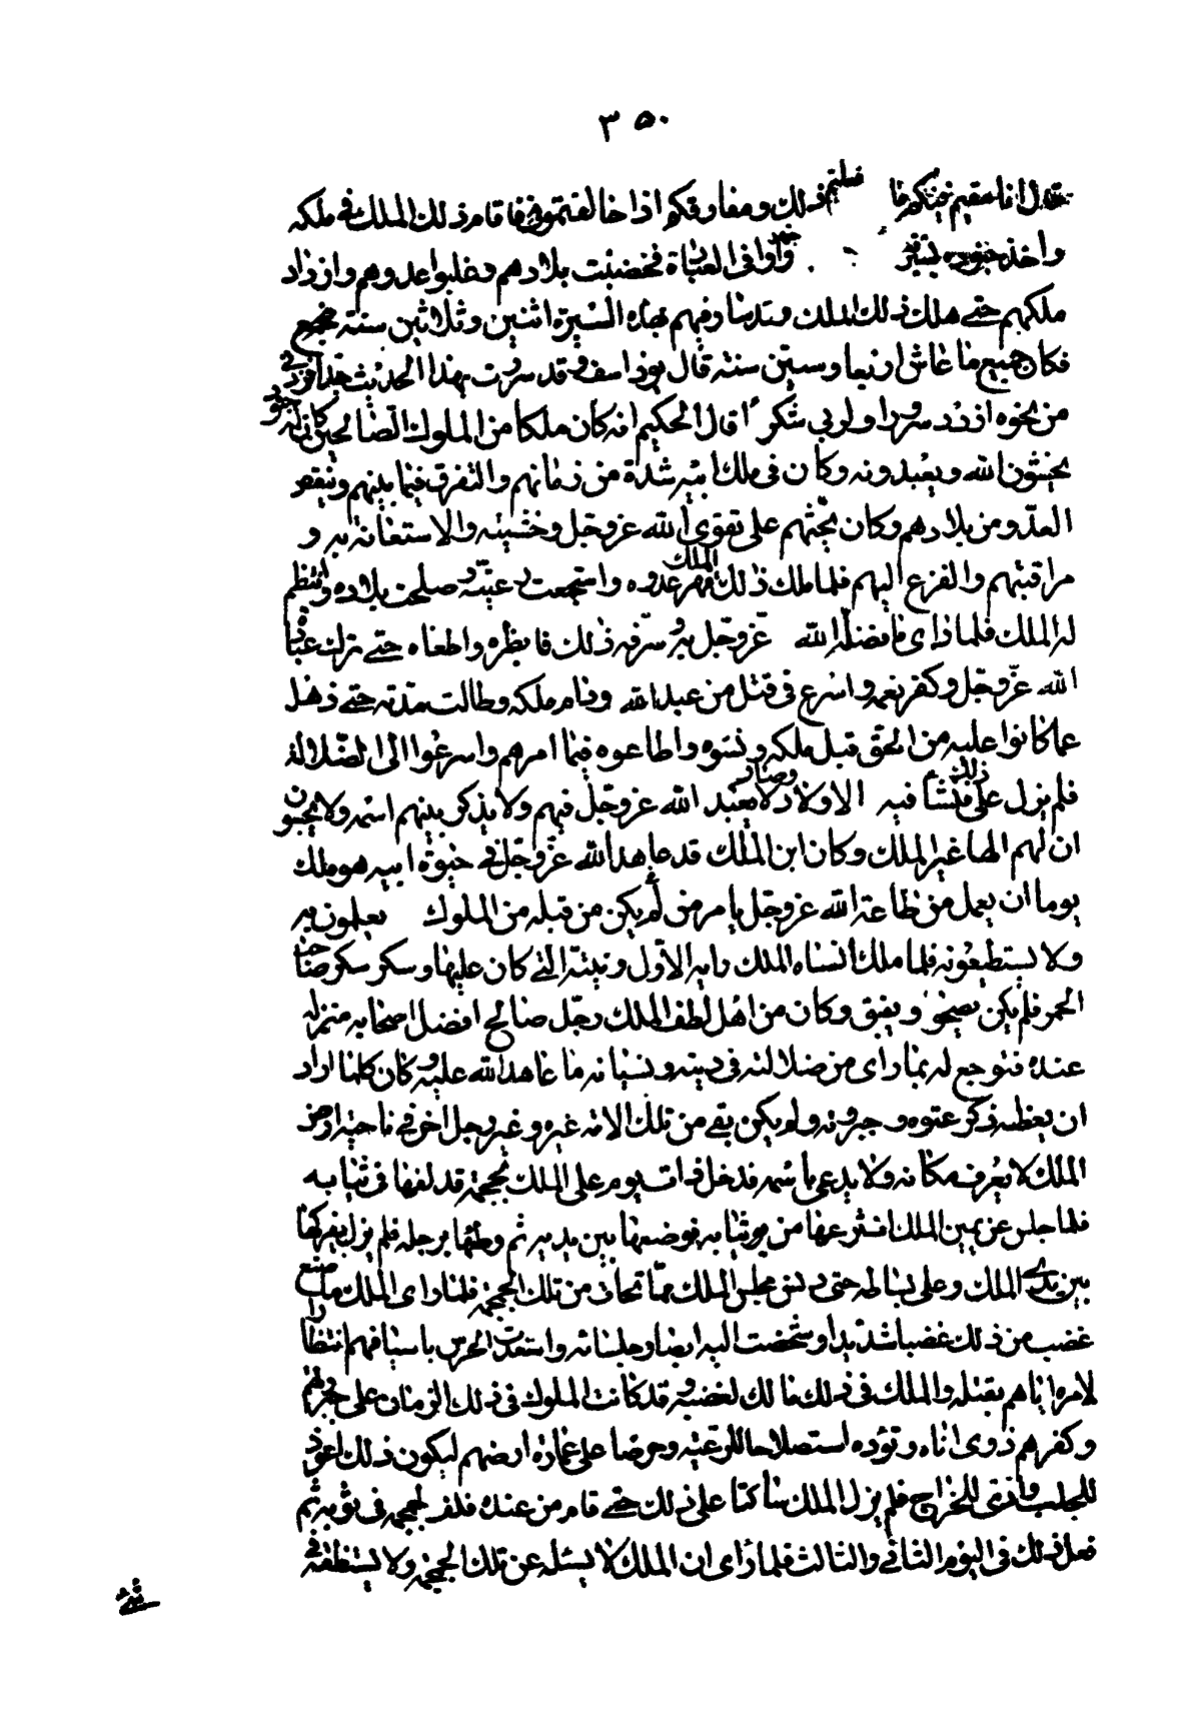 ٣٥٠
قال انا مقيم فيكم ما فعلتم ذلك ومفارقكم اذا خالفتموني فاقام ذلك الملك في ملكه
واخذ جنوده بسيرة جنود واوا في العبادة فخصبت بلادهم وغلبوا عدوهم وازداد
ملكهم حتى هلك ذلك الملك وقد سار فيهم بهذه السيرة اثنين وثلاثين سنة فجميع
فكان جميع ما عاش اربعا وستين سنة قال يوذاسف وقد سررت بهذا الحديث جدا فزدني
من نحوه ازدد سرورا ولربي شكرا قال الحكيم انه كان ملكا من الملوك الصالحين وكان له جنود
يخشون الله ويعبدونه وكان في ملك ابيه شدة من زمانهم والتفرق فيما بينهم وينقص
العدو من بلادهم وكان يحثهم على تقوى الله عز وجل وخشيته والاستعانة به و
مراقبتهم والفزع اليهم فلما ملك ذلك الملك قهر عدوه واستجمعت رعيته وصلحت بلاده وانتظم
له الملك فلما راى ما فضله الله عز وجل به وشرفه ذلك فابطره واطغاه حتى ترك عبادة
الله عز وجل وكفر نعمه واسرع في قتل من عبد الله ودام ملكه وطالت مدته حتى ذهل
عما كانوا عليه من الحق قبل ملكه ونسوه واطاعوه فيما امرهم واسرعوا الى الضلالة
فلم يزل على ذلك فنشأ فيه الاولاد وصار لا يعبد الله عز وجل فيهم ولا يذكر بينهم اسمه ولا يحسبون
ان لهم الها غير الملك وكان ابن الملك قد عاهد الله عز وجل في حيوة ابيه هو ملك
يوما ان يعمل من طاعة الله عز وجل بامر من لم يكن من قبله من الملوك يعملون به
ولا يستطيعونه فلما ملك انساه الملك رايه الاول ونيته التي كان عليها وسكر سكر صاحب
الخمر فلم يكن يصحو ويفيق وكان من اهل لطف الملك رجل صالح افضل اصحابه منزلة
عنده فتوجع له بما راى من ضلالته في دينه ونسيانه ما عاهد الله عليه وكان كلما اراد
ان يعظه ذكر عتوه وجبروته ولم يكن بقي من تلك الامة غيره وغير رجل اخر في ناحية ارض
الملك لا يعرف مكانه ولا يدعى باسمه فدخل ذات يوم على الملك بجمجمة قد لفها في ثيابه
فلما جلس عن يمين الملك انتزعها من ثيابه فوضعها بين يديه ثم وطئها برجله فلم يزل يفركها
بين يدي الملك وعلى بساطه حتى دنس مجلس الملك مما تحات من تلك الجمجمة فلما راى الملك ما صنع
غضب من ذلك غضبا شديدا وشخصت اليه ابصار جلسائه واستعدت الحرس باسيافهم انتظارا
لامره اياهم بقتله والملك في ذلك مالك لغضبه وقد كانت الملوك في ذلك الزمان على جبروتهم
وكفرهم ذوي اناء وتؤدة استصلاحا للرعية وحرصا على عمارة ارضهم ليكون ذلك اعون
للجلب وادى للخراج فلم يزل الملك ساكتا على ذلك حتى قام من عنده فلف الجمجمة في ثوبه ثم
فعل ذلك في اليوم الثاني والثالث فلما راى ان الملك لا يسئله عن تلك الجمجمة ولا يستنطقه في
شئ